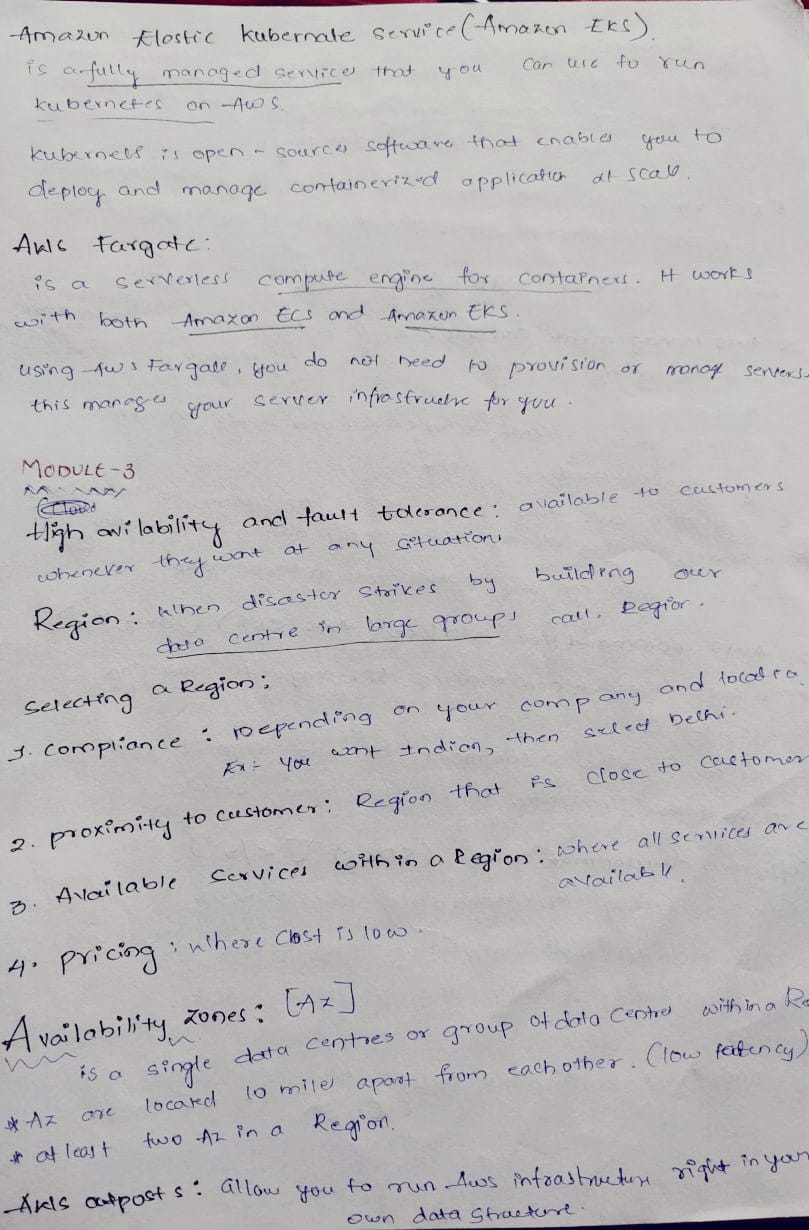 Amazon Elostic kubernate service (Amazon EKS).
is a fully managed services that you can use to run
kubernetes on AWS.
kubernets is open - sources software that enables you to
deploy and manage containerized application at scale.
AWS Fargate:
is a serverless compute engine for containers. It works
with both Amazon ECS and Amazon EKS.
using Aws Fargate, you do not need to provision or manage servers.
this manages your server infrastructure for you.
MODULE-3
High avilability and fault tolerance: available to customers
whenever they want at any situation.
Region: When disaster strikes by building our
data centre in large groups call. Region.
Selecting a Region:
1. compliance : Depending on your company and location
Ex:- You want Indian, then select Delhi.
2. proximity to customer: Region that is close to customer
3. Available services within a Region: where all services are
available.
4. Pricing : where cost is low.
Availability zones: [AZ]
is a single data centres or group of data centres within a Re
* AZ are located 10 miles apart from each other. (low latency)
* at least two AZ in a Region.
AWS outposts: allow you to run Aws infrastructure right in your
own data structure.